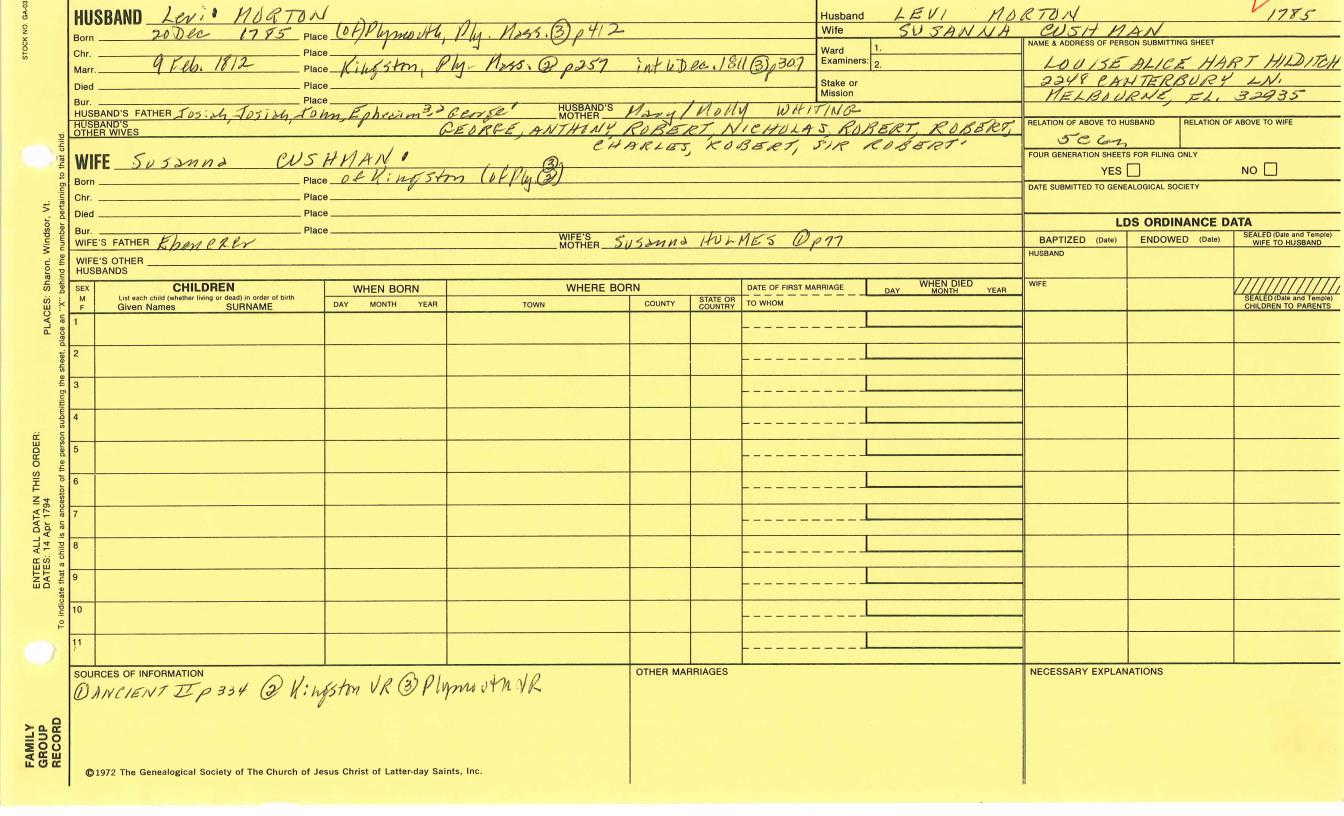 STOCK NO. GA-03
HUSBAND Levi MORTON
Born 20 Dec 1785 Place (of) Plymouth, Ply. Mass. ③ p412
Chr. Place
Marr. 9 Feb. 1812 Place Kingston, Ply. Mass. ② p257 int 6 Dec. 1811 ③ p307
Died Place
Bur. Place
HUSBAND'S FATHER Josiah, Josiah, John, Ephraim George HUSBAND'S MOTHER Mary/Molly WHITING
HUSBAND'S OTHER WIVES GEORGE, ANTHONY, ROBERT, NICHOLAS, ROBERT, ROBERT,
CHARLES, ROBERT, SIR ROBERT
WIFE Susanna CUSHMAN
Born Place of Kingston (of Ply ③)
Chr. Place
Died Place
Bur. Place
WIFE'S FATHER Ebenezer WIFE'S MOTHER Susanna HOLMES ① p77
WIFE'S OTHER HUSBANDS
Husband LEVI MORTON 1785
Wife SUSANNA CUSHMAN
Ward Examiners: 1.
2.
Stake or Mission
NAME & ADDRESS OF PERSON SUBMITTING SHEET
LOUISE ALICE HART HILDITCH
2248 CANTERBURY LN.
MELBOURNE, FL. 32935
RELATION OF ABOVE TO HUSBAND RELATION OF ABOVE TO WIFE
FOUR GENERATION SHEETS FOR FILING ONLY
YES NO
DATE SUBMITTED TO GENEALOGICAL SOCIETY
LDS ORDINANCE DATA
BAPTIZED (Date) ENDOWED (Date) SEALED (Date and Temple) WIFE TO HUSBAND
HUSBAND
WIFE
SEALED (Date and Temple) CHILDREN TO PARENTS
SEX M F
CHILDREN
List each child (whether living or dead) in order of birth
Given Names SURNAME
WHEN BORN
DAY MONTH YEAR
WHERE BORN
TOWN COUNTY STATE OR COUNTRY
DATE OF FIRST MARRIAGE
TO WHOM
WHEN DIED
DAY MONTH YEAR
1
2
3
4
5
6
7
8
9
10
11
SOURCES OF INFORMATION
① ANCIENT II p 334 ② Kingston VR ③ Plymouth VR
OTHER MARRIAGES
NECESSARY EXPLANATIONS
©1972 The Genealogical Society of The Church of Jesus Christ of Latter-day Saints, Inc.
FAMILY GROUP RECORD
ENTER ALL DATA IN THIS ORDER:
DATES: 14 Apr 1794
PLACES: Sharon, Windsor, Vt.
To indicate that a child is an ancestor of the person submitting the sheet, place an "X" behind the number pertaining to that child.